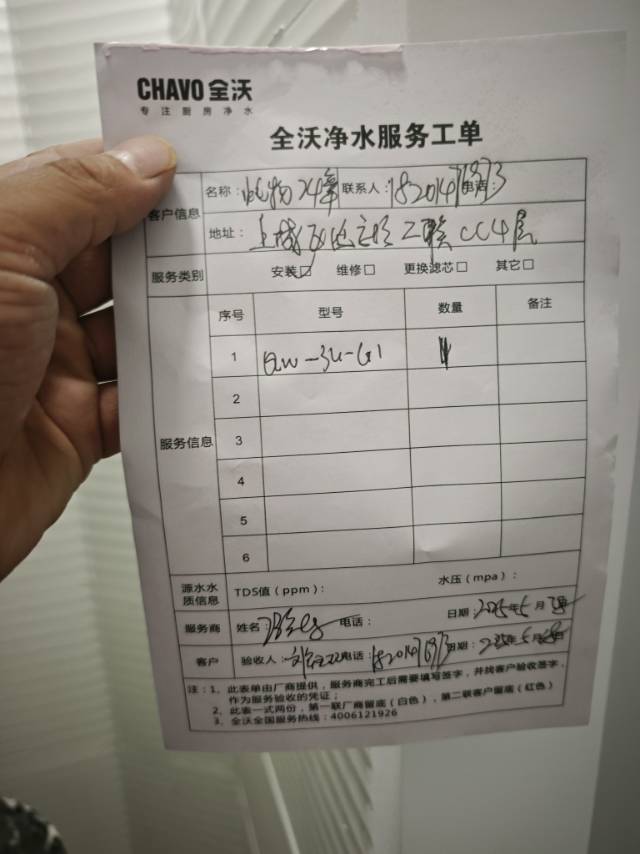 CHAVO 全沃
专注厨房净水
全沃净水服务工单
客户信息
名称： 联系人： 电话：
地址：
服务类别 安装□ 维修□ 更换滤芯□ 其它□
服务信息
序号 型号 数量 备注
1
2
3
4
5
6
源水水质信息 TDS值（ppm）： 水压（mpa）：
服务商 姓名： 电话： 日期： 年5月
客户 验收人： 电话： 日期： 年5月
注：1、此表单由厂商提供，服务商完工后需要填写签字，并找客户验收签字，
作为服务验收的凭证；
2、此表一式两份，第一联厂商留底（白色），第二联客户留底（红色）
3、全沃全国服务热线：4006121926